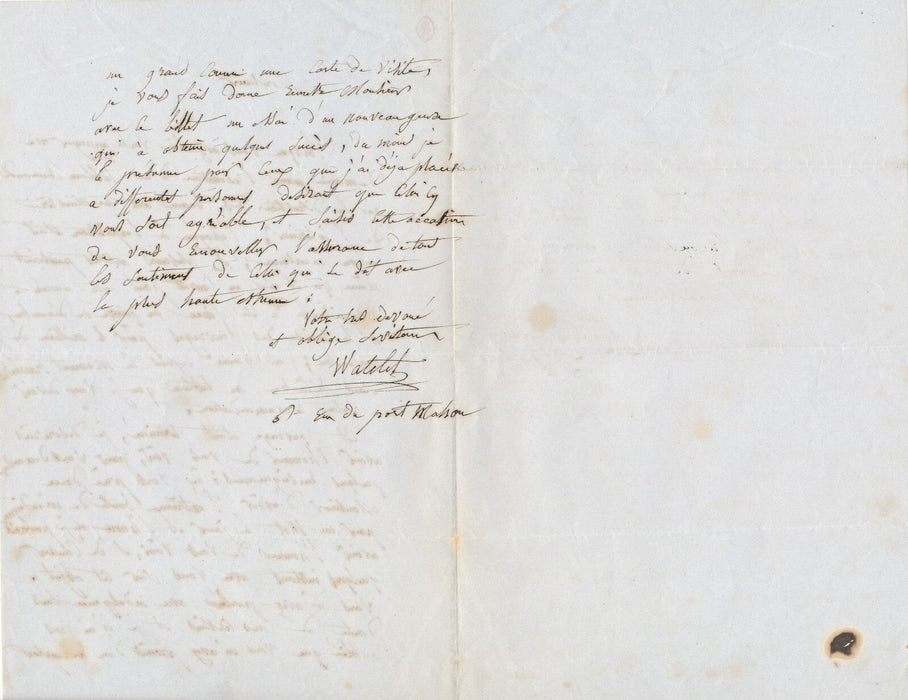 un grand comme une Carte de visite,
je vous fais donc remettre Monsieur
avec ce billet un Essai d'un nouveau genre
qui à obtenu quelques succès, du moins je
le présume par ceux que j'ai déja placés
a differentes personnes desirant que Celui Cy
vous soit agréable, et saisis cette occasion
de vous renouveller l'assurance de tout
les sentimens de Celui qui se dit avec
la plus haute estime :
Votre très devoué
et obligé serviteur
Watelet
du port Mahon